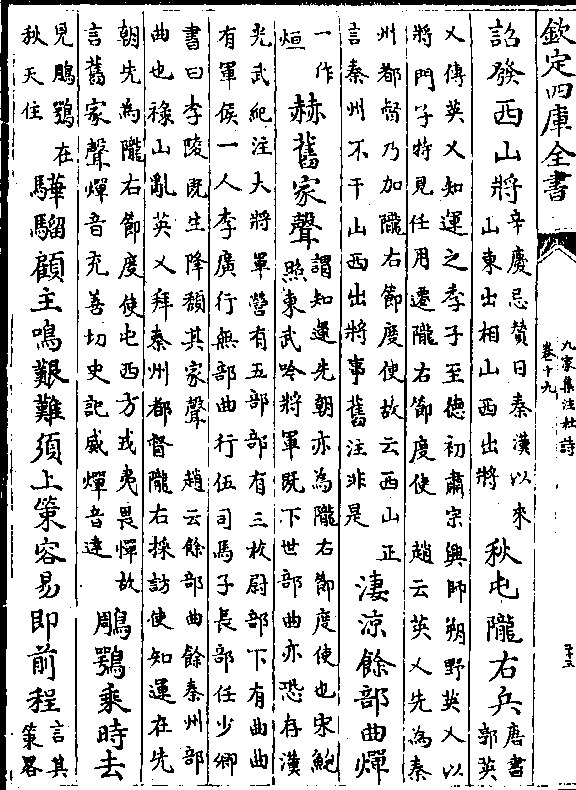 欽定四庫全書
九家集注杜詩
卷十九
詔發西山將辛慶忌贊曰秦漢以來山東出相山西出將秋屯隴右兵唐書郭英
乂傳英乂知運之季子至德初肅宗興師朔野英乂以
將門子特見任用遷隴右節度使 趙云英乂先為秦
州都督乃加隴右節度使故云西山正
言秦州不干山西出將事舊注非是淒涼餘部曲燀
一作烜赫舊家聲謂知運先朝亦為隴右節度使也宋鮑照東武吟將軍既下世部曲亦恐存漢
光武紀注大將軍營有五部部有三校尉部下有曲曲
有軍侯一人李廣行無部曲行伍司馬子長部任少卿
書曰李陵既生降頹其家聲 趙云餘部曲餘秦州部
曲也祿山亂英乂拜秦州都督隴右採訪使知運在先
朝先為隴右節度使屯西方戎夷畏憚故
言舊家聲燀音充善切史記威燀音達鵰鶚乘時去
見鵰鶚在秋天住驊騮顧主鳴艱難須上策容易即前程言其策畧